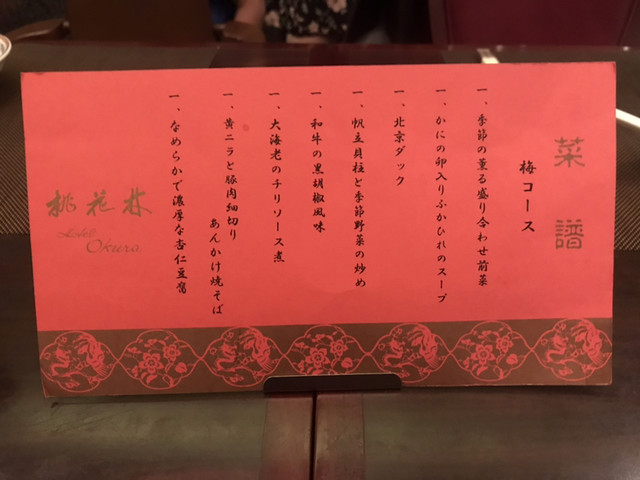 菜譜
梅コース
一、季節の薫る盛り合わせ前菜
一、かにの卵入りふかひれのスープ
一、北京ダック
一、帆立貝柱と季節野菜の炒め
一、和牛の黒胡椒風味
一、大海老のチリソース煮
一、黄ニラと豚肉細切り
あんかけ焼そば
一、なめらかで濃厚な杏仁豆腐
桃花林
Hotel
Okura